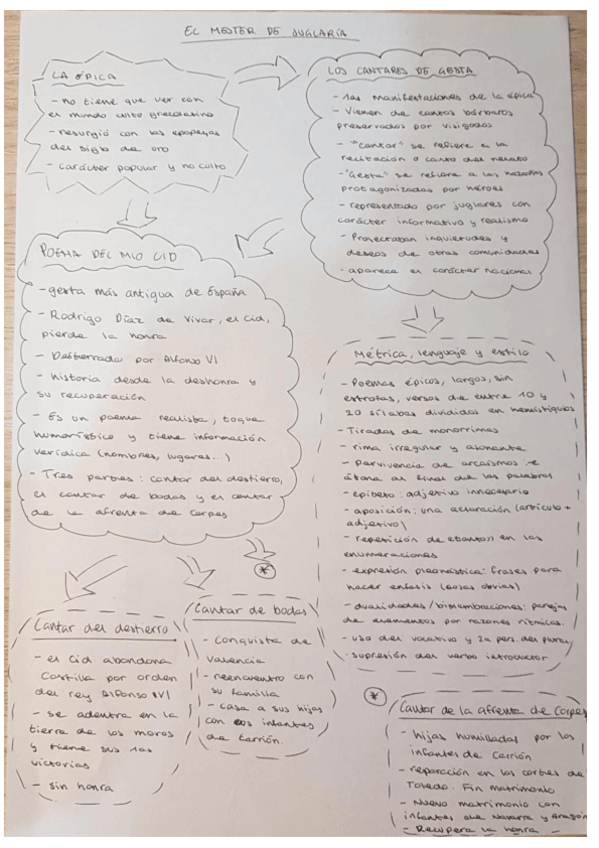 EL MESTER DE JUGLARÍA
LA ÉPICA
- no tiene que ver con
el mundo culto grecolatino
- resurgió con las epopeyas
del siglo de oro
- carácter popular y no culto
LOS CANTARES DE GESTA
- 1as manifestaciones de la épica
- Vienen de cantos bárbaros
preservados por visigodos
- "Cantar" se refiere a la
recitación o canto del relato
- "Gesta" se refiere a las hazañas
protagonizadas por héroes
- representado por juglares con
carácter informativo y realismo
- Proyectaban inquietudes y
deseos de otras comunidades
- aparece el carácter nacional
POEMA DEL MIO CID
- gesta más antigua de España
- Rodrigo Díaz de Vivar, el cid,
pierde la honra
- Desterrado por Alfonso VI
- historia desde la deshonra y
su recuperación
- Es un poema realista, toque
humorístico y tiene información
verídica (nombres, lugares...)
- Tres partes: cantar del destierro,
el cantar de bodas y el cantar
de la afrenta de Corpes
Métrica, lenguaje y estilo
- Poemas épicos, largos, sin
estrofas, versos de entre 10 y
20 sílabas divididas en hemistiquios
- Tiradas de monorrimas
- rima irregular y asonante
- Pervivencia de arcaísmos: -e
átona al final de las palabras
- epíteto: adjetivo innecesario
- aposición: una aclaración (artículo +
adjetivo)
- repetición de en las
enumeraciones
- expresión pleonástica: frases para
hacer énfasis (cosas obvias)
- dualidades/bimembraciones: parejas
de elementos por razones rítmicas.
- uso del vocativo y 2a pers. del plural
- supresión del verbo introductor
*
Cantar del destierro
- el Cid abandona
Castilla por orden
del rey Alfonso VI
- se adentra en la
tierra de los moros
y tiene sus 1as
victorias
- sin honra
Cantar de bodas
- conquista de
Valencia
- reencuentro con
su familia
- casa a sus hijas
con los infantes
de Carrión.
*
Cantar de la afrenta de Corpes
- hijas humilladas por los
infantes de Carrión
- reparación en las cortes de
Toledo. Fin matrimonio
- Nuevo matrimonio con
infantes de Navarra y Aragón
- Recupera la honra